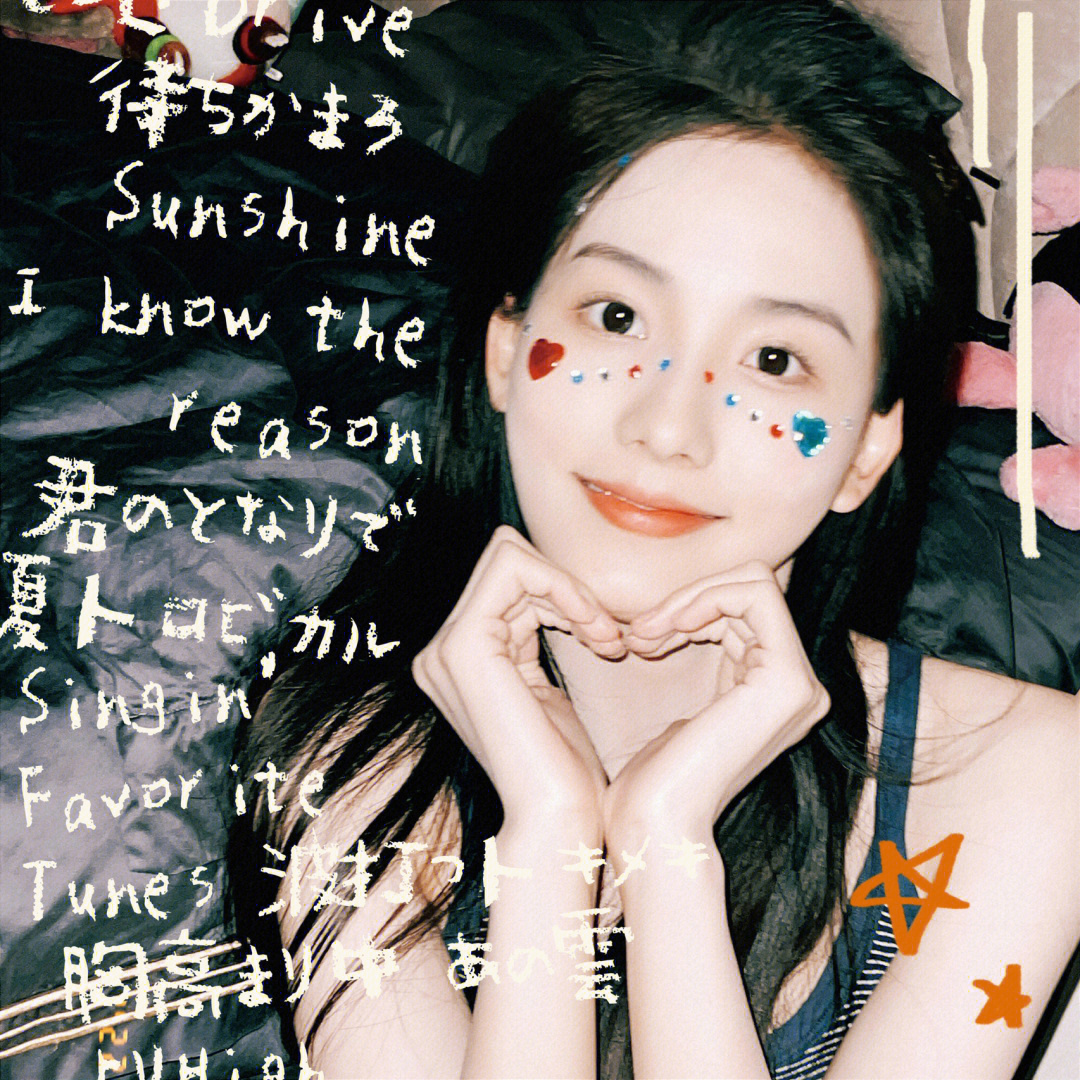 Drive
待ちかまろ
Sunshine
I know the
reason
君のとなりで
夏トロピカル
Singin'
Favorite
Tunes 波打つトキメキ
胸高まり中 あの雲
High